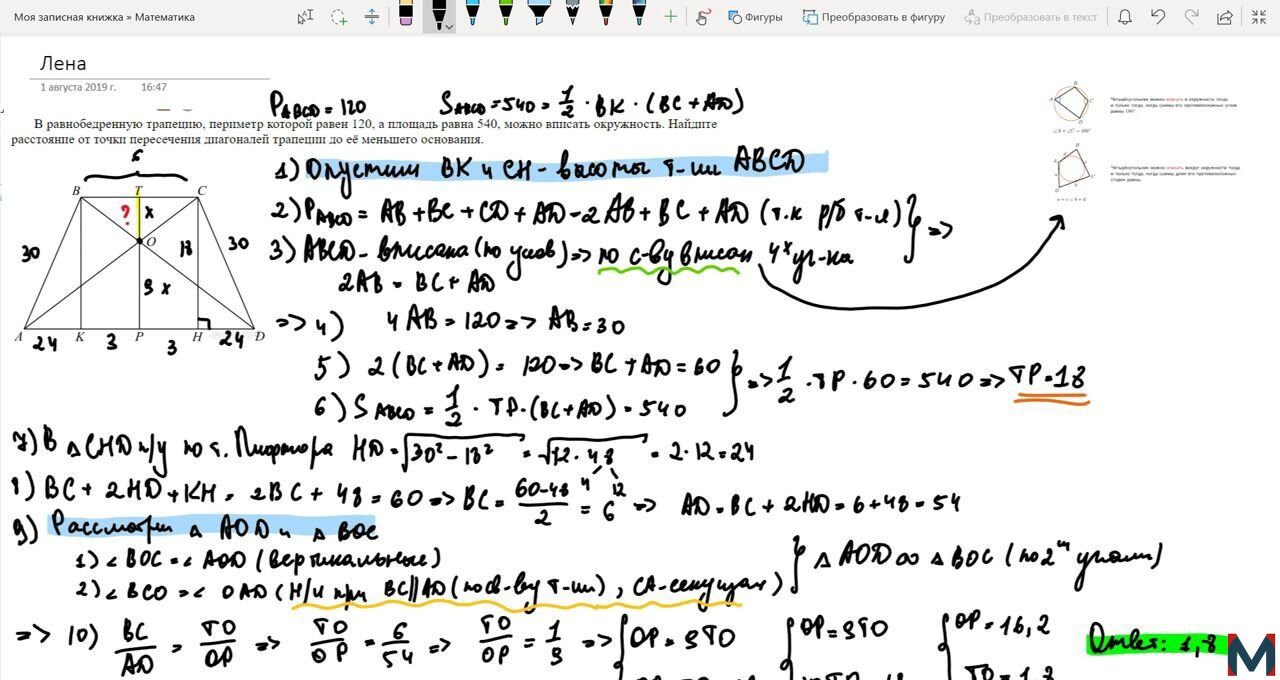 Моя записная книжка » Математика
Фигуры
Преобразовать в фигуру
Преобразовать в текст
Лена
1 августа 2019 г. 16:47
P_ABCD = 120 S_ABCD = 540 = 1/2 · BK · (BC + AD)
В равнобедренную трапецию, периметр которой равен 120, а площадь равна 540, можно вписать окружность. Найдите
расстояние от точки пересечения диагоналей трапеции до её меньшего основания.
6
B T C
? x
O
30 18 30
9 x
A K P H D
24 3 3 24
1) Опустим BK и CH - высоты т-ии ABCD
2) P_ABCD = AB + BC + CD + AD = 2AB + BC + AD (т.к р/б т-я) } =>
3) ABCD - вписана (по услов) => по с-ву вписан 4х уг-ка
2AB = BC + AD
=> 4) 4AB = 120 => AB = 30
5) 2(BC + AD) = 120 => BC + AD = 60
6) S_ABCD = 1/2 · TP · (BC + AD) = 540
} => 1/2 · TP · 60 = 540 => TP = 18
7) В △CHD п/у по т. Пифагора HD = √(30² - 18²) = √(12 · 48) = 2 · 12 = 24
4 12
8) BC + 2HD + KH = 2BC + 48 = 60 => BC = (60-48)/2 = 6 => AD = BC + 2HD = 6 + 48 = 54
9) Рассмотрим △ AOD и △ BOC
1) ∠BOC = ∠AOD (вертикальные)
2) ∠BCO = ∠OAD (н/л при BC || AD (по св-ву т-ии), CA - секущая)
} △ AOD ∞ △ BOC (по 2м углам)
=> 10) BC/AD = TO/OP => TO/OP = 6/54 => TO/OP = 1/9 => { OP = 9TO { OP = 9TO { OP = 16,2
Ответ: 1,8
M
Четырёхугольник можно вписать в окружность тогда
и только тогда, когда суммы его противоположных углов
равны 180°.
∠A + ∠C = 180°
Четырёхугольник можно описать вокруг окружности тогда
и только тогда, когда суммы длин его противоположных
сторон равны.
a + c = b + d